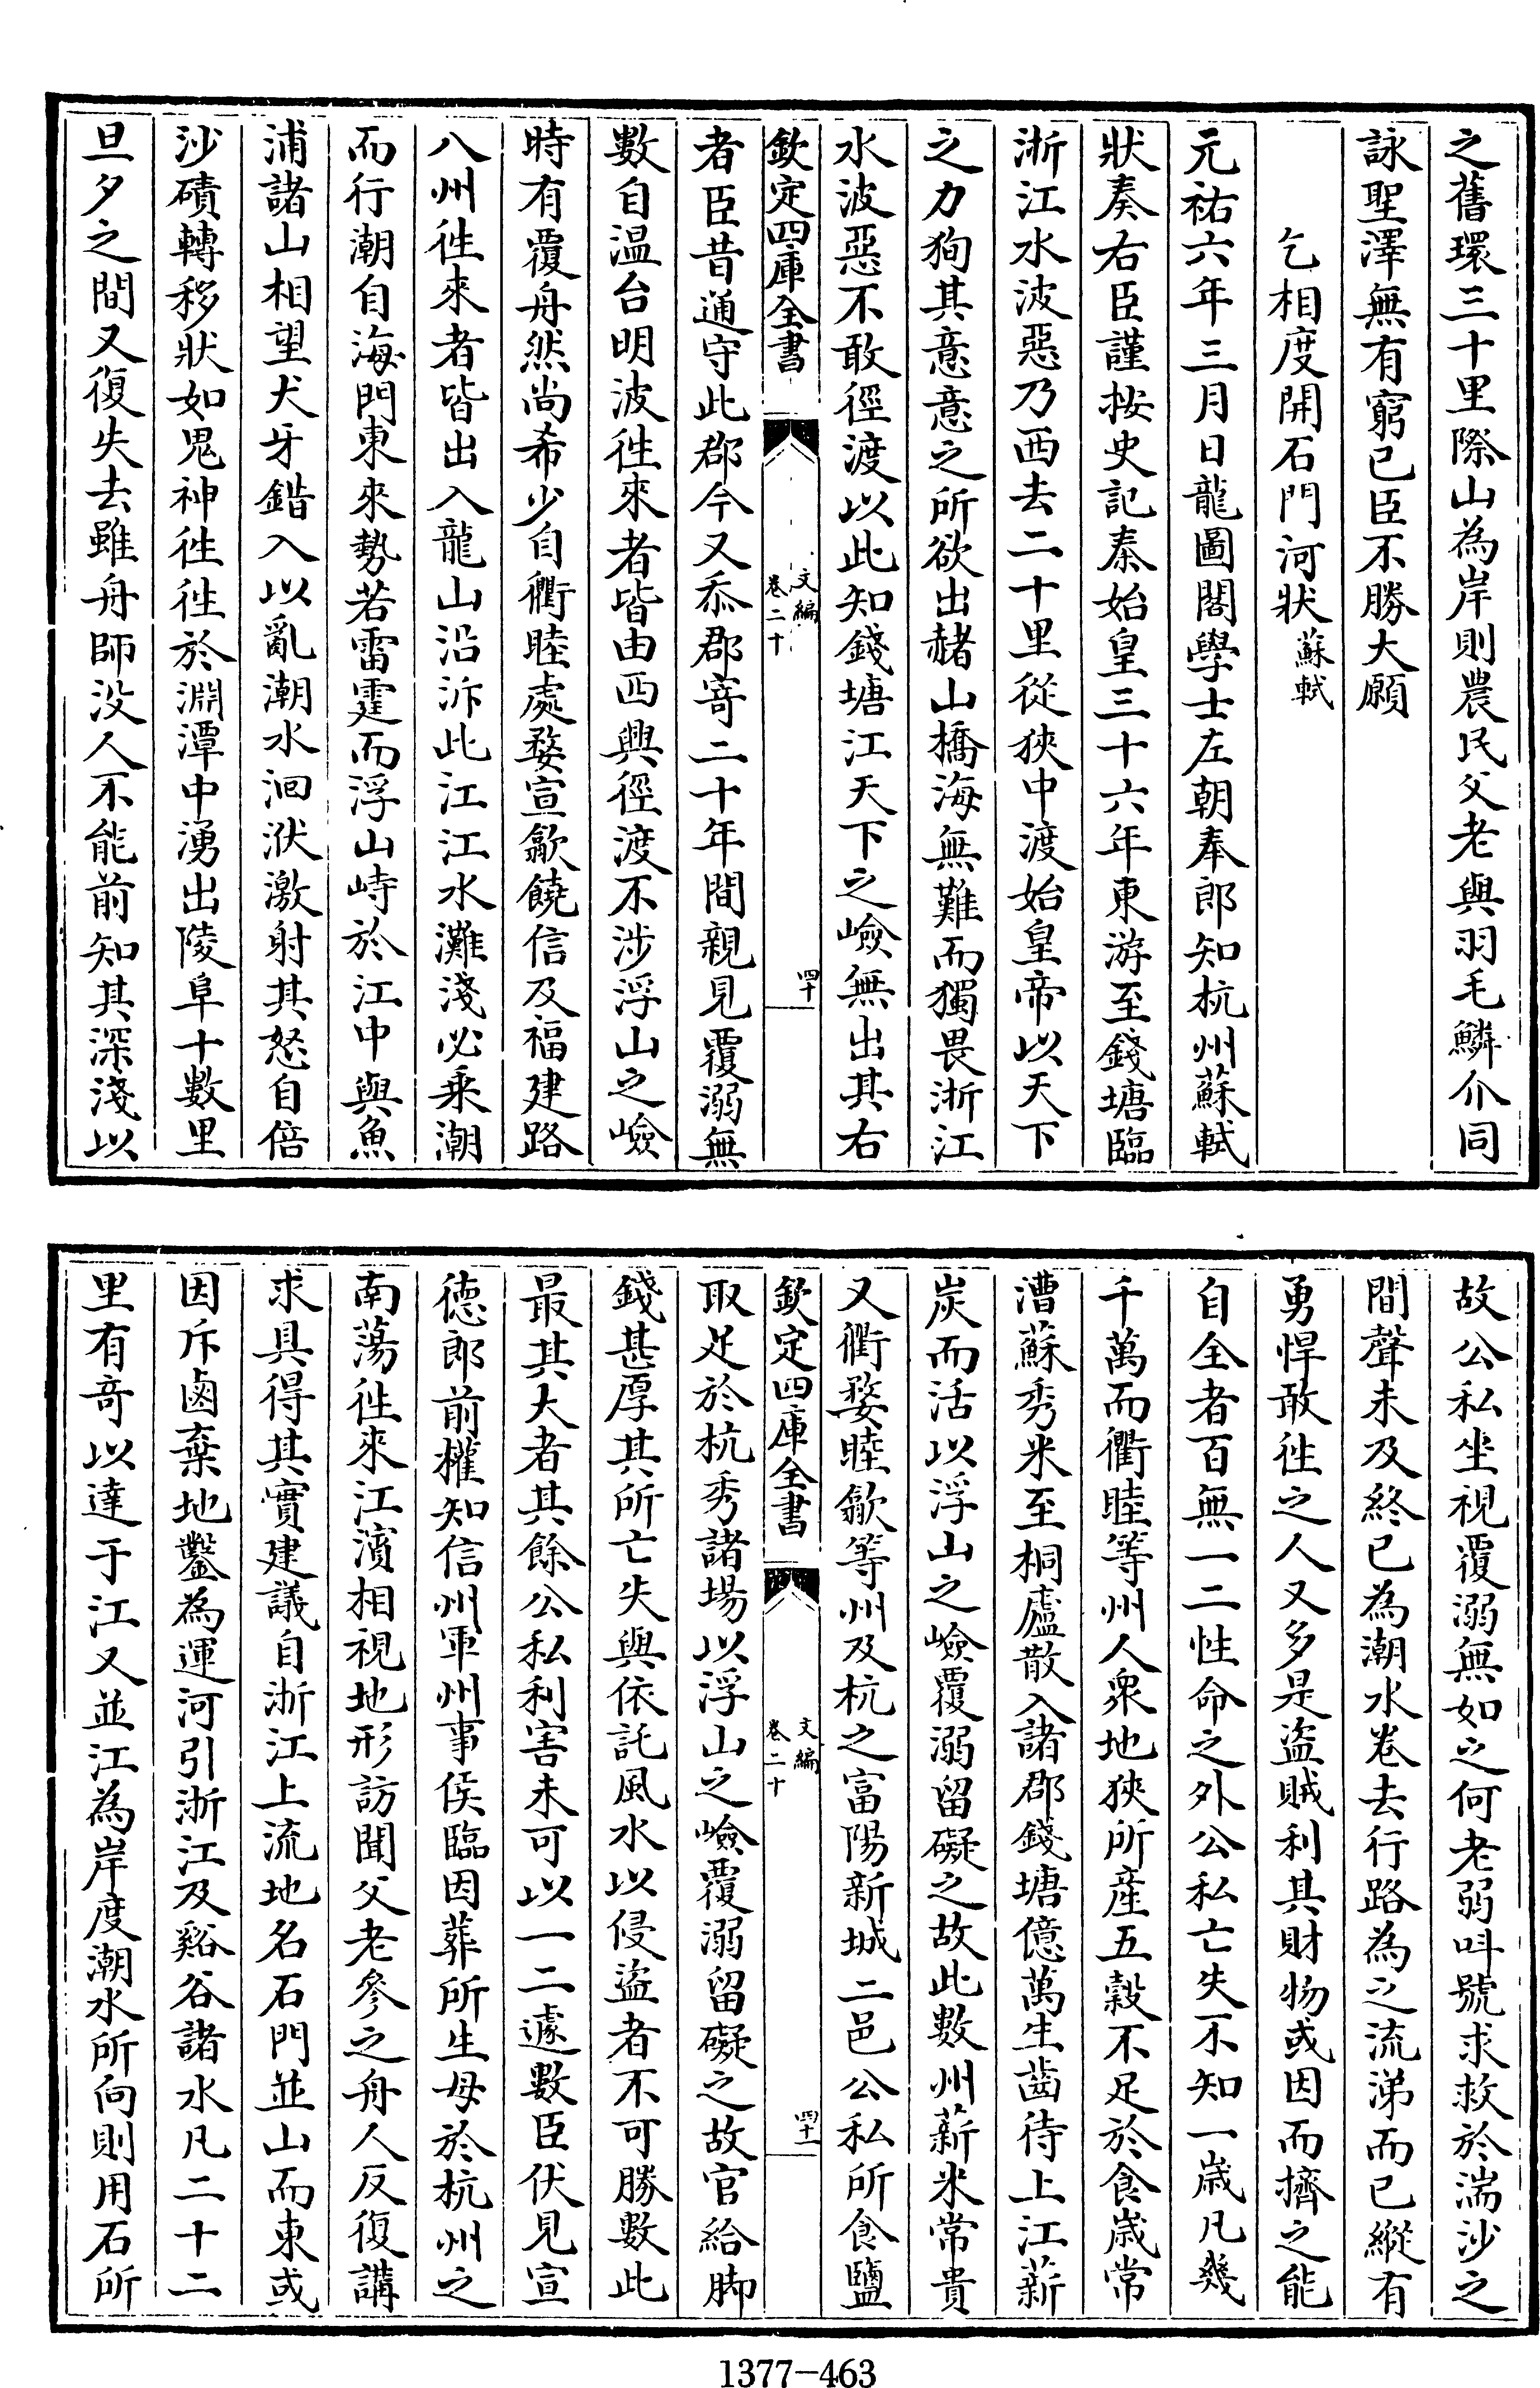 之舊環三十里際山為岸則農民父老與羽毛鱗介同
詠聖澤無有窮已臣不勝大願
乞相度開石門河狀蘇軾
元祐六年三月日龍圖閣學士左朝奉郎知杭州蘇軾
狀奏右臣謹按史記秦始皇三十六年東游至錢塘臨
浙江水波惡乃西去二十里從狹中渡始皇帝以天下
之力狥其意意之所欲出赭山橋海無難而獨畏浙江
水波惡不敢徑渡以此知錢塘江天下之嶮無出其右
欽定四庫全書 文編 卷二十 四十
者臣昔通守此郡今又忝郡寄二十年間親見覆溺無
數自温台明波徃來者皆由西興徑渡不涉浮山之嶮
時有覆舟然尚希少自衢睦處婺宣歙饒信及福建路
八州徃來者皆出入龍山沿泝此江江水灘淺必乗潮
而行潮自海門東來勢若雷霆而浮山峙於江中與魚
浦諸山相望犬牙錯入以亂潮水洄洑激射其怒自倍
沙磧轉移狀如鬼神徃徃於淵潭中湧出陵阜十數里
旦夕之間又復失去雖舟師没人不能前知其深淺以
故公私坐視覆溺無如之何老弱呌號求救於湍沙之
間聲未及終已為潮水卷去行路為之流涕而已縱有
勇悍敢徃之人又多是盜賊利其財物或因而擠之能
自全者百無一二性命之外公私亡失不知一歲凡幾
千萬而衢睦等州人衆地狹所産五穀不足於食歲常
漕蘇秀米至桐廬散入諸郡錢塘億萬生齒待上江薪
炭而活以浮山之嶮覆溺留礙之故此數州薪米常貴
又衢婺睦歙等州及杭之富陽新城二邑公私所食鹽
欽定四庫全書 文編 卷二十 四十一
取足於杭秀諸場以浮山之嶮覆溺留礙之故官給脚
錢甚厚其所亡失與依託風水以侵盜者不可勝數此
最其大者其餘公私利害未可以一二遽數臣伏見宣
德郎前權知信州軍州事侯臨因葬所生母於杭州之
南蕩徃來江濱相視地形訪聞父老參之舟人反復講
求具得其實建議自浙江上流地名石門並山而東或
因斥鹵棄地鑿為運河引浙江及谿谷諸水凡二十二
里有竒以達于江又並江為岸度潮水所向則用石所
1377-463